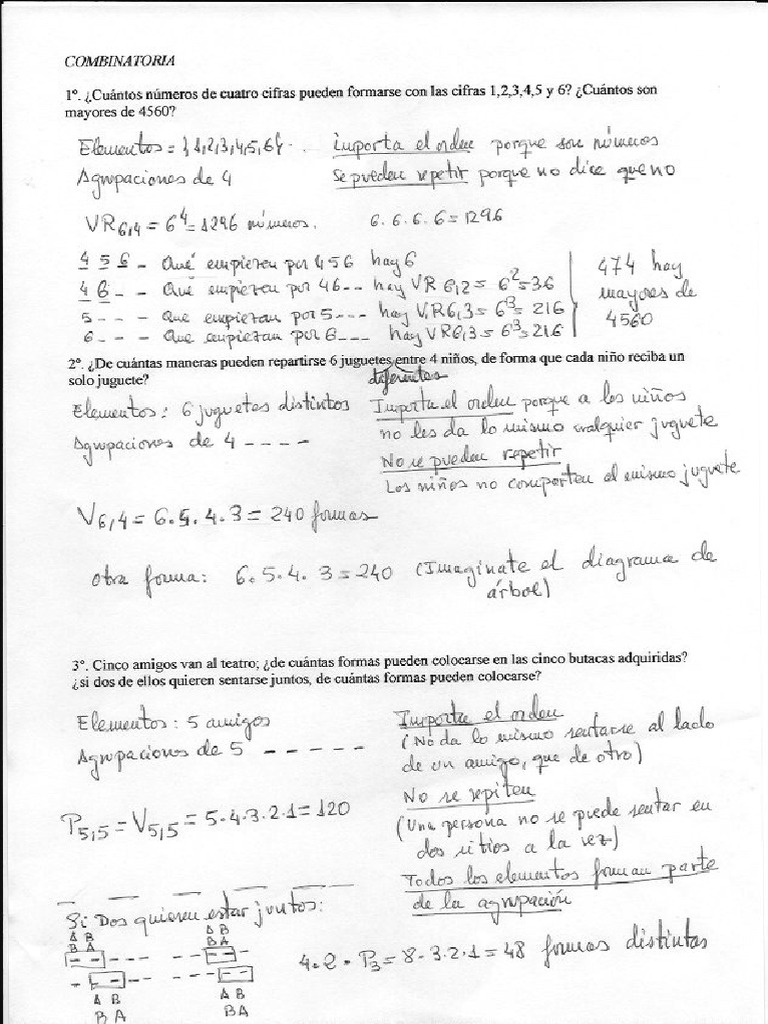 COMBINATORIA
1º. ¿Cuántos números de cuatro cifras pueden formarse con las cifras 1,2,3,4,5 y 6? ¿Cuántos son
mayores de 4560?
Elementos = {1,2,3,4,5,6}. Importa el orden porque son números
Agrupaciones de 4 Se pueden repetir porque no dice que no
VR6,4 = 6^4 = 1296 números. 6.6.6.6 = 1296
4 5 6 - Que empiezan por 456 hay 6
4 6 - - Que empiezan por 46-- hay VR 6,2 = 6^2 = 36
5 - - - Que empiezan por 5--- hay V.R6,3 = 6^3 = 216
6 - - - Que empiezan por 6--- hay VR6,3 = 6^3 = 216
474 hay
mayores de
4560
2º. ¿De cuántas maneras pueden repartirse 6 juguetes entre 4 niños, de forma que cada niño reciba un
diferentes
solo juguete?
Elementos: 6 juguetes distintos Importa el orden porque a los niños
no les da lo mismo cualquier juguete
Agrupaciones de 4 - - - -
No se pueden repetir
Los niños no comparten el mismo juguete
V6,4 = 6.5.4.3 = 240 formas
otra forma: 6.5.4.3 = 240 (Imagínate el diagrama de
árbol)
3º. Cinco amigos van al teatro; ¿de cuántas formas pueden colocarse en las cinco butacas adquiridas?
¿si dos de ellos quieren sentarse juntos, de cuántas formas pueden colocarse?
Elementos: 5 amigos Importa el orden
Agrupaciones de 5 - - - - - (No da lo mismo sentarse al lado
de un amigo, que de otro)
No se repiten
P5,5 = V5,5 = 5.4.3.2.1 = 120
(Una persona no se puede sentar en
dos sitios a la vez)
Todos los elementos forman parte
de la agrupación
Si Dos quieren estar juntos:
A B A B
B A B A
4.2.P3 = 8.3.2.1 = 48 formas distintas
A B A B
B A B A